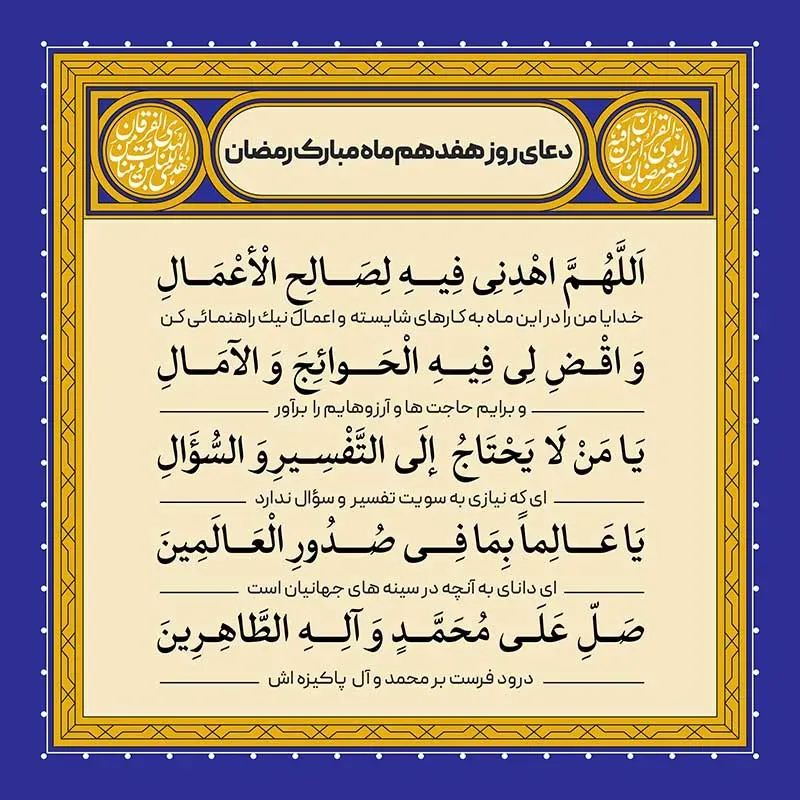 دعای روز هفدهم ماه مبارک رمضان
شهر رمضان الذی انزل فیه القرآن
هدی للناس و بینات من الهدی و الفرقان
اَللَّهُمَّ اهْدِنِی فِیهِ لِصَالِحِ الْأَعْمَالِ
خدایا من را در این ماه به کارهای شایسته و اعمال نیك راهنمائی کن
وَ اقْضِ لِی فِیهِ الْحَوائِجَ وَ الآمَالِ
و برایم حاجت ها و آرزوهایم را برآور
یَا مَنْ لَا یَحْتَاجُ إلَی التَّفْسِیرِ وَ السُّؤَالِ
ای که نیازی به سویت تفسیر و سؤال ندارد
یَا عَالِماً بِمَا فِی صُدُورِ الْعَالَمِینَ
ای دانای به آنچه در سینه های جهانیان است
صَلِّ عَلَی مُحَمَّدٍ وَ آلِهِ الطَّاهِرِینَ
درود فرست بر محمد و آل پاکیزه اش